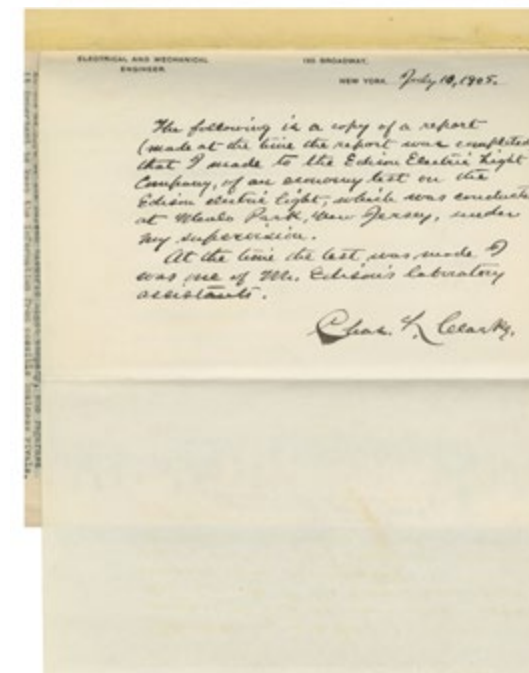 ELECTRICAL AND MECHANICAL
ENGINEER.
BROADWAY,
NEW YORK, July 10, 1905.
The following is a copy of a report
(made at the time the report was completed
that I made to the Edison Electric Light
Company, of an economy test on the
Edison electric light, which was conducte
at Menlo Park, New Jersey, under
my supervision.
At the time the test was made I
was one of Mr. Edison's laboratory
assistants.
Chas. L. Clarke.